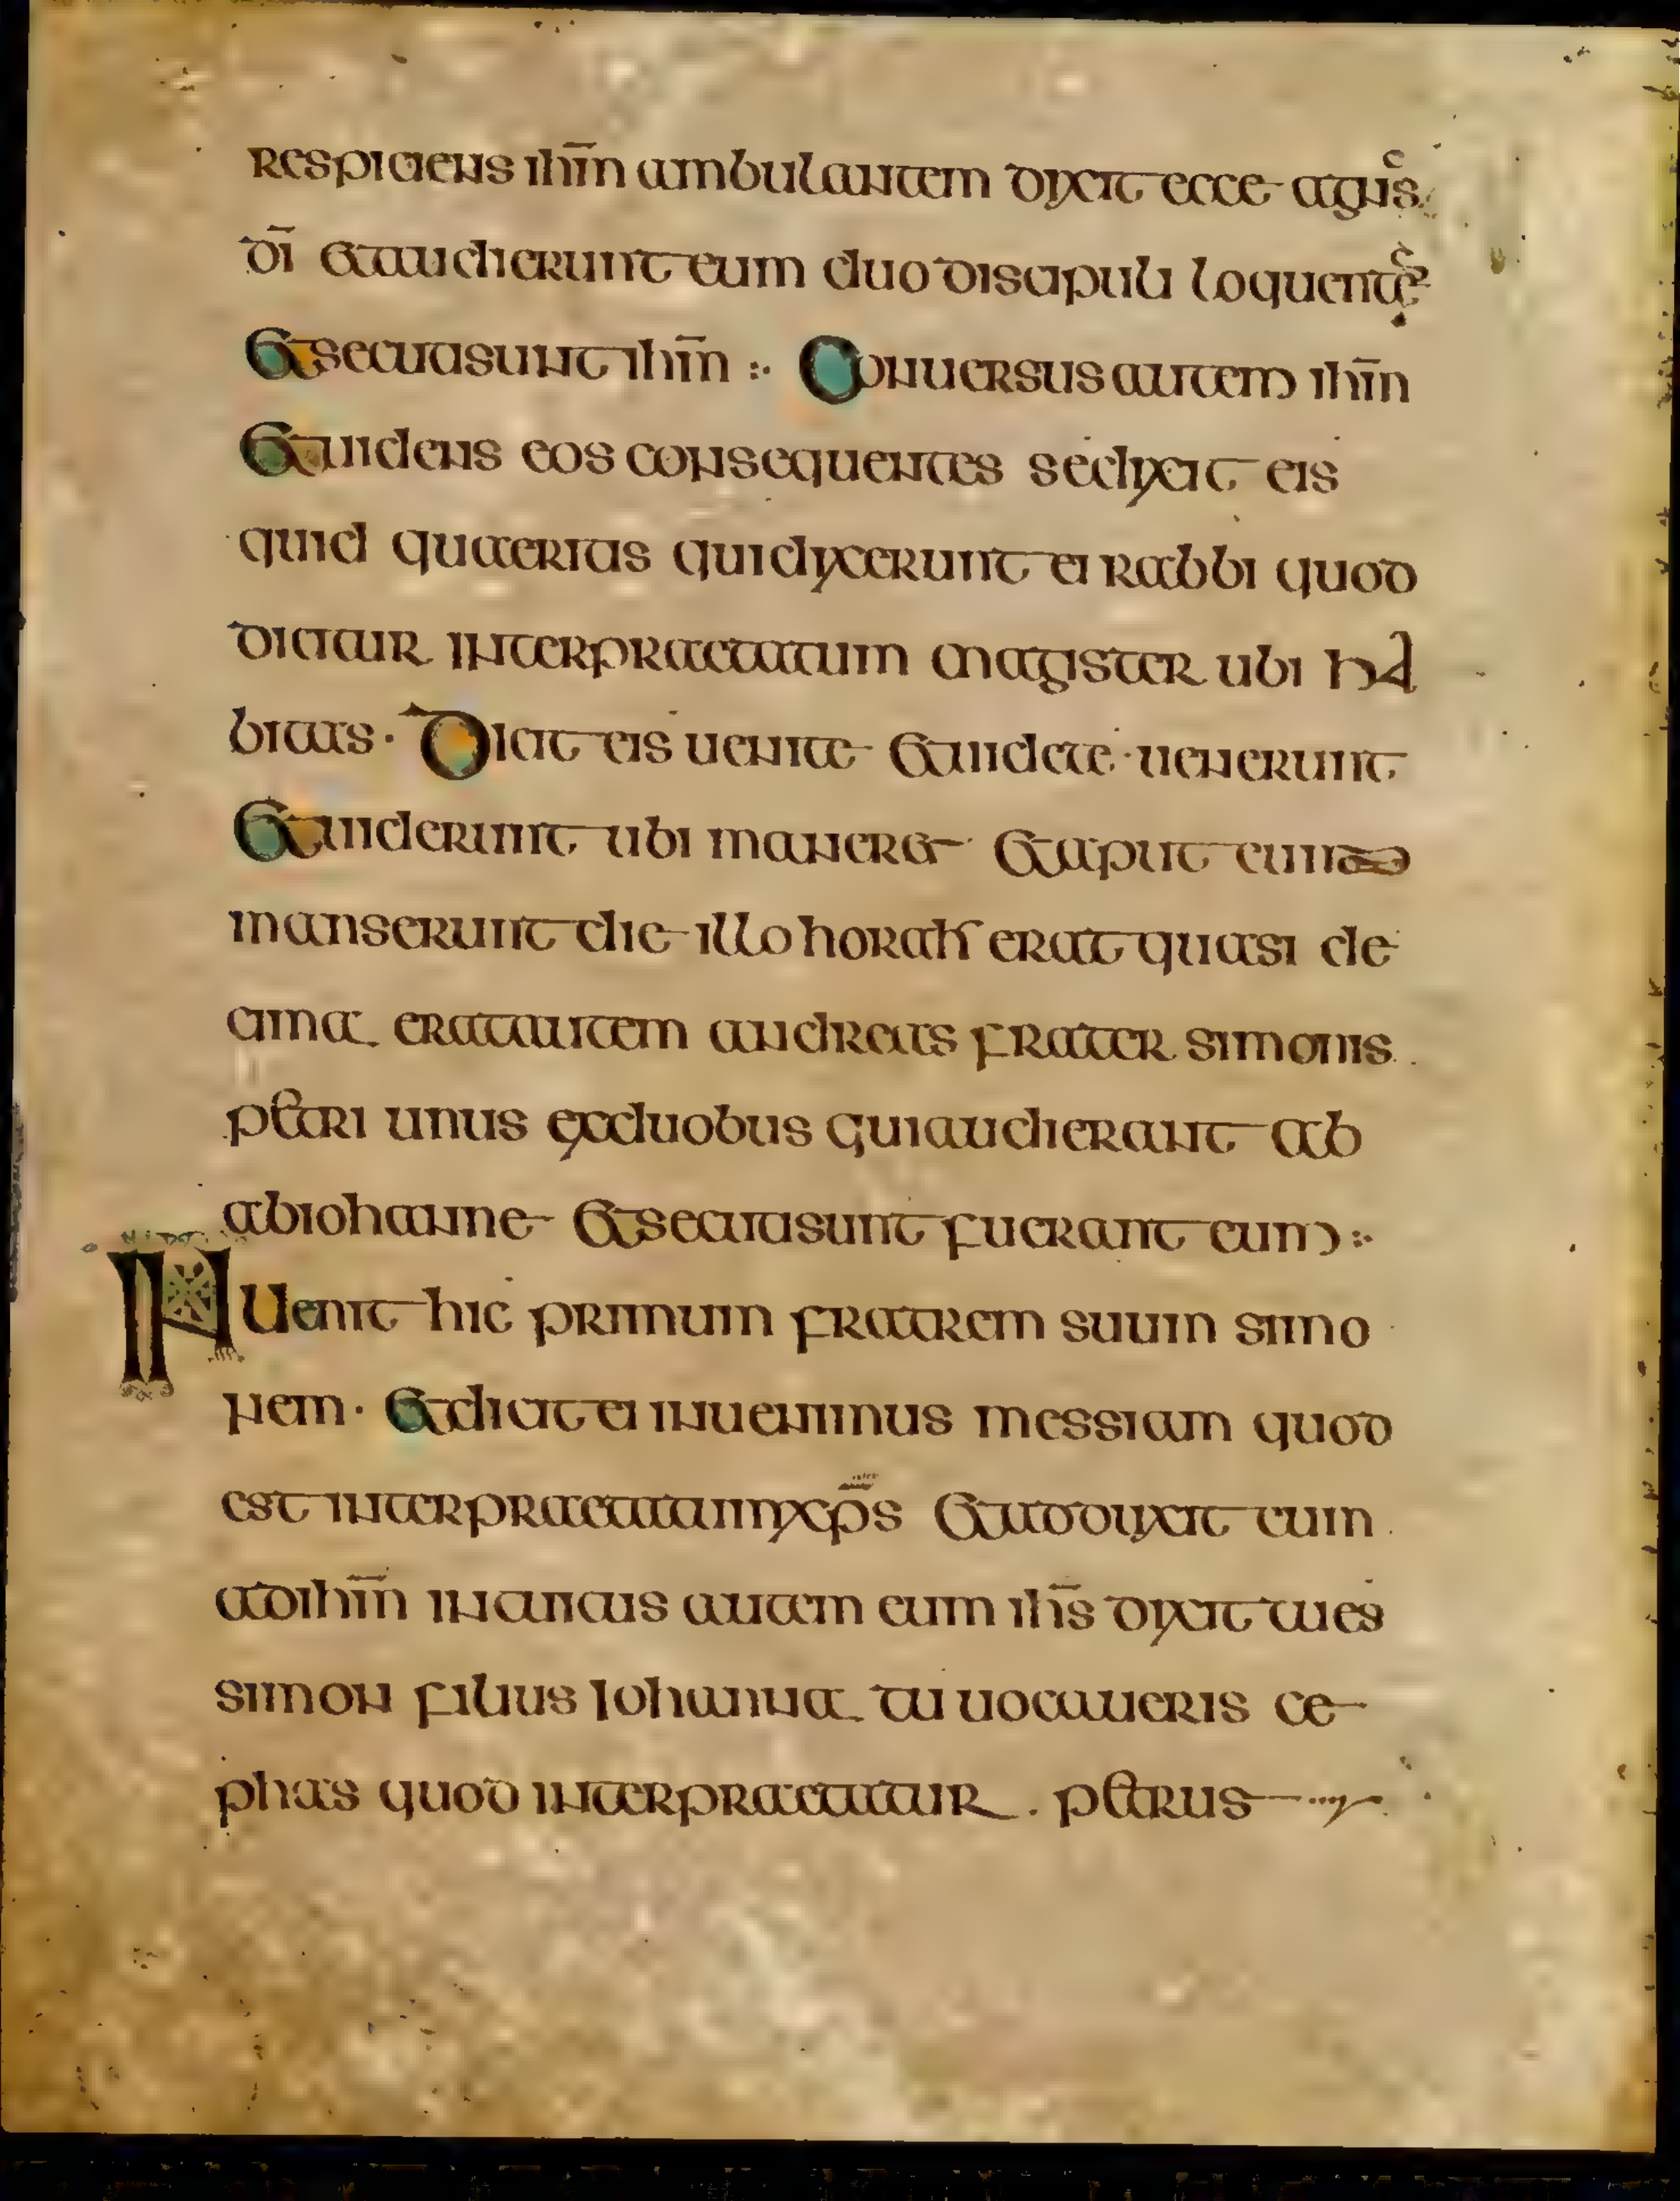 respiciens ihm̄ ambulantem dixit ecce agns̄
dī et audierunt eum duo discipuli loquentē
et secuti sunt ihm̄ :· Conuersus autem ihm̄
et uidens eos consequentes se dixit eis
quid quaeritis qui dixerunt ei rabbi quod
dicitur interpraetatum magister ubi ha
bitas · Dicit eis uenite et uidete · uenerunt
et uiderunt ubi maneret et aput eum
manserunt die illo hora erat quasi de
cima erat autem andreas frater simonis
petri unus ex duobus qui audierant ab
ab iohanne et secuti sunt fuerant eum :·
INUenit hic primum fratrem suum simo
nem · et dicit ei inuenimus messiam quod
est interpraetatum xp̄s et adduxit eum
ad ihm̄ intuitus autem eum ihs̄ dixit tu es
simon filius iohanna tu uocaueris ce
phas quod interpraetatur . petrus